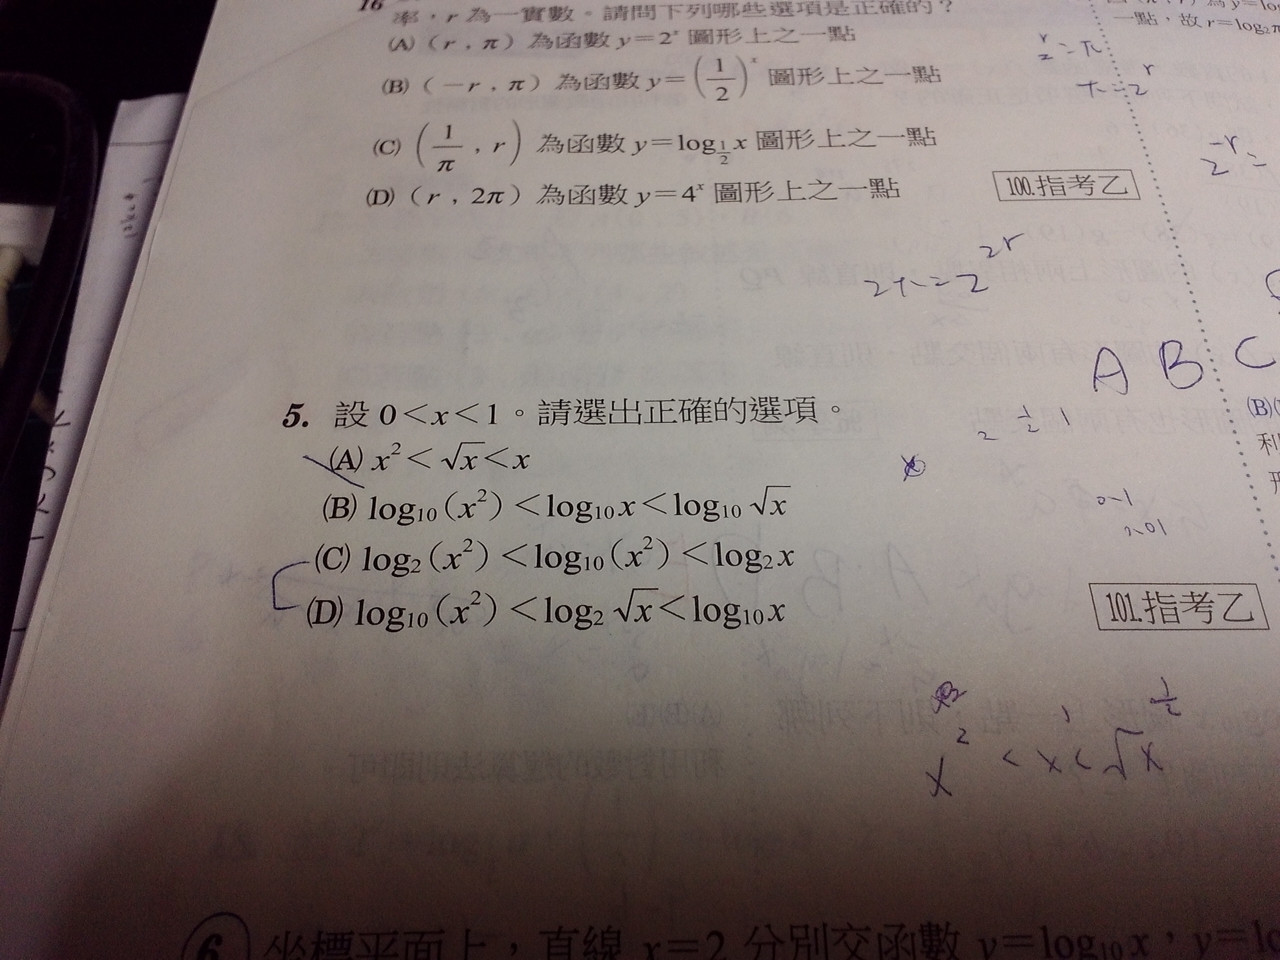 16
率，r 為一實數。請問下列哪些選項是正確的？
(A)（r，π）為函數 y=2ˣ 圖形上之一點
(B)（−r，π）為函數 y=(1/2)ˣ 圖形上之一點
(C)（1/π，r）為函數 y=log_{1/2} x 圖形上之一點
(D)（r，2π）為函數 y=4ˣ 圖形上之一點
100.指考乙
一點，故 r=log₂π
π=2^r
2π=2^{2r}
A B C
5. 設 0＜x＜1。請選出正確的選項。
(A) x²＜√x＜x
(B) log₁₀(x²)＜log₁₀x＜log₁₀√x
(C) log₂(x²)＜log₁₀(x²)＜log₂x
(D) log₁₀(x²)＜log₂√x＜log₁₀x
101.指考乙
2 1/2 1
2 1 1/2
x < x < √x
6. 坐標平面上，直線 x=2 分別交函數 y=log₁₀x，y=log